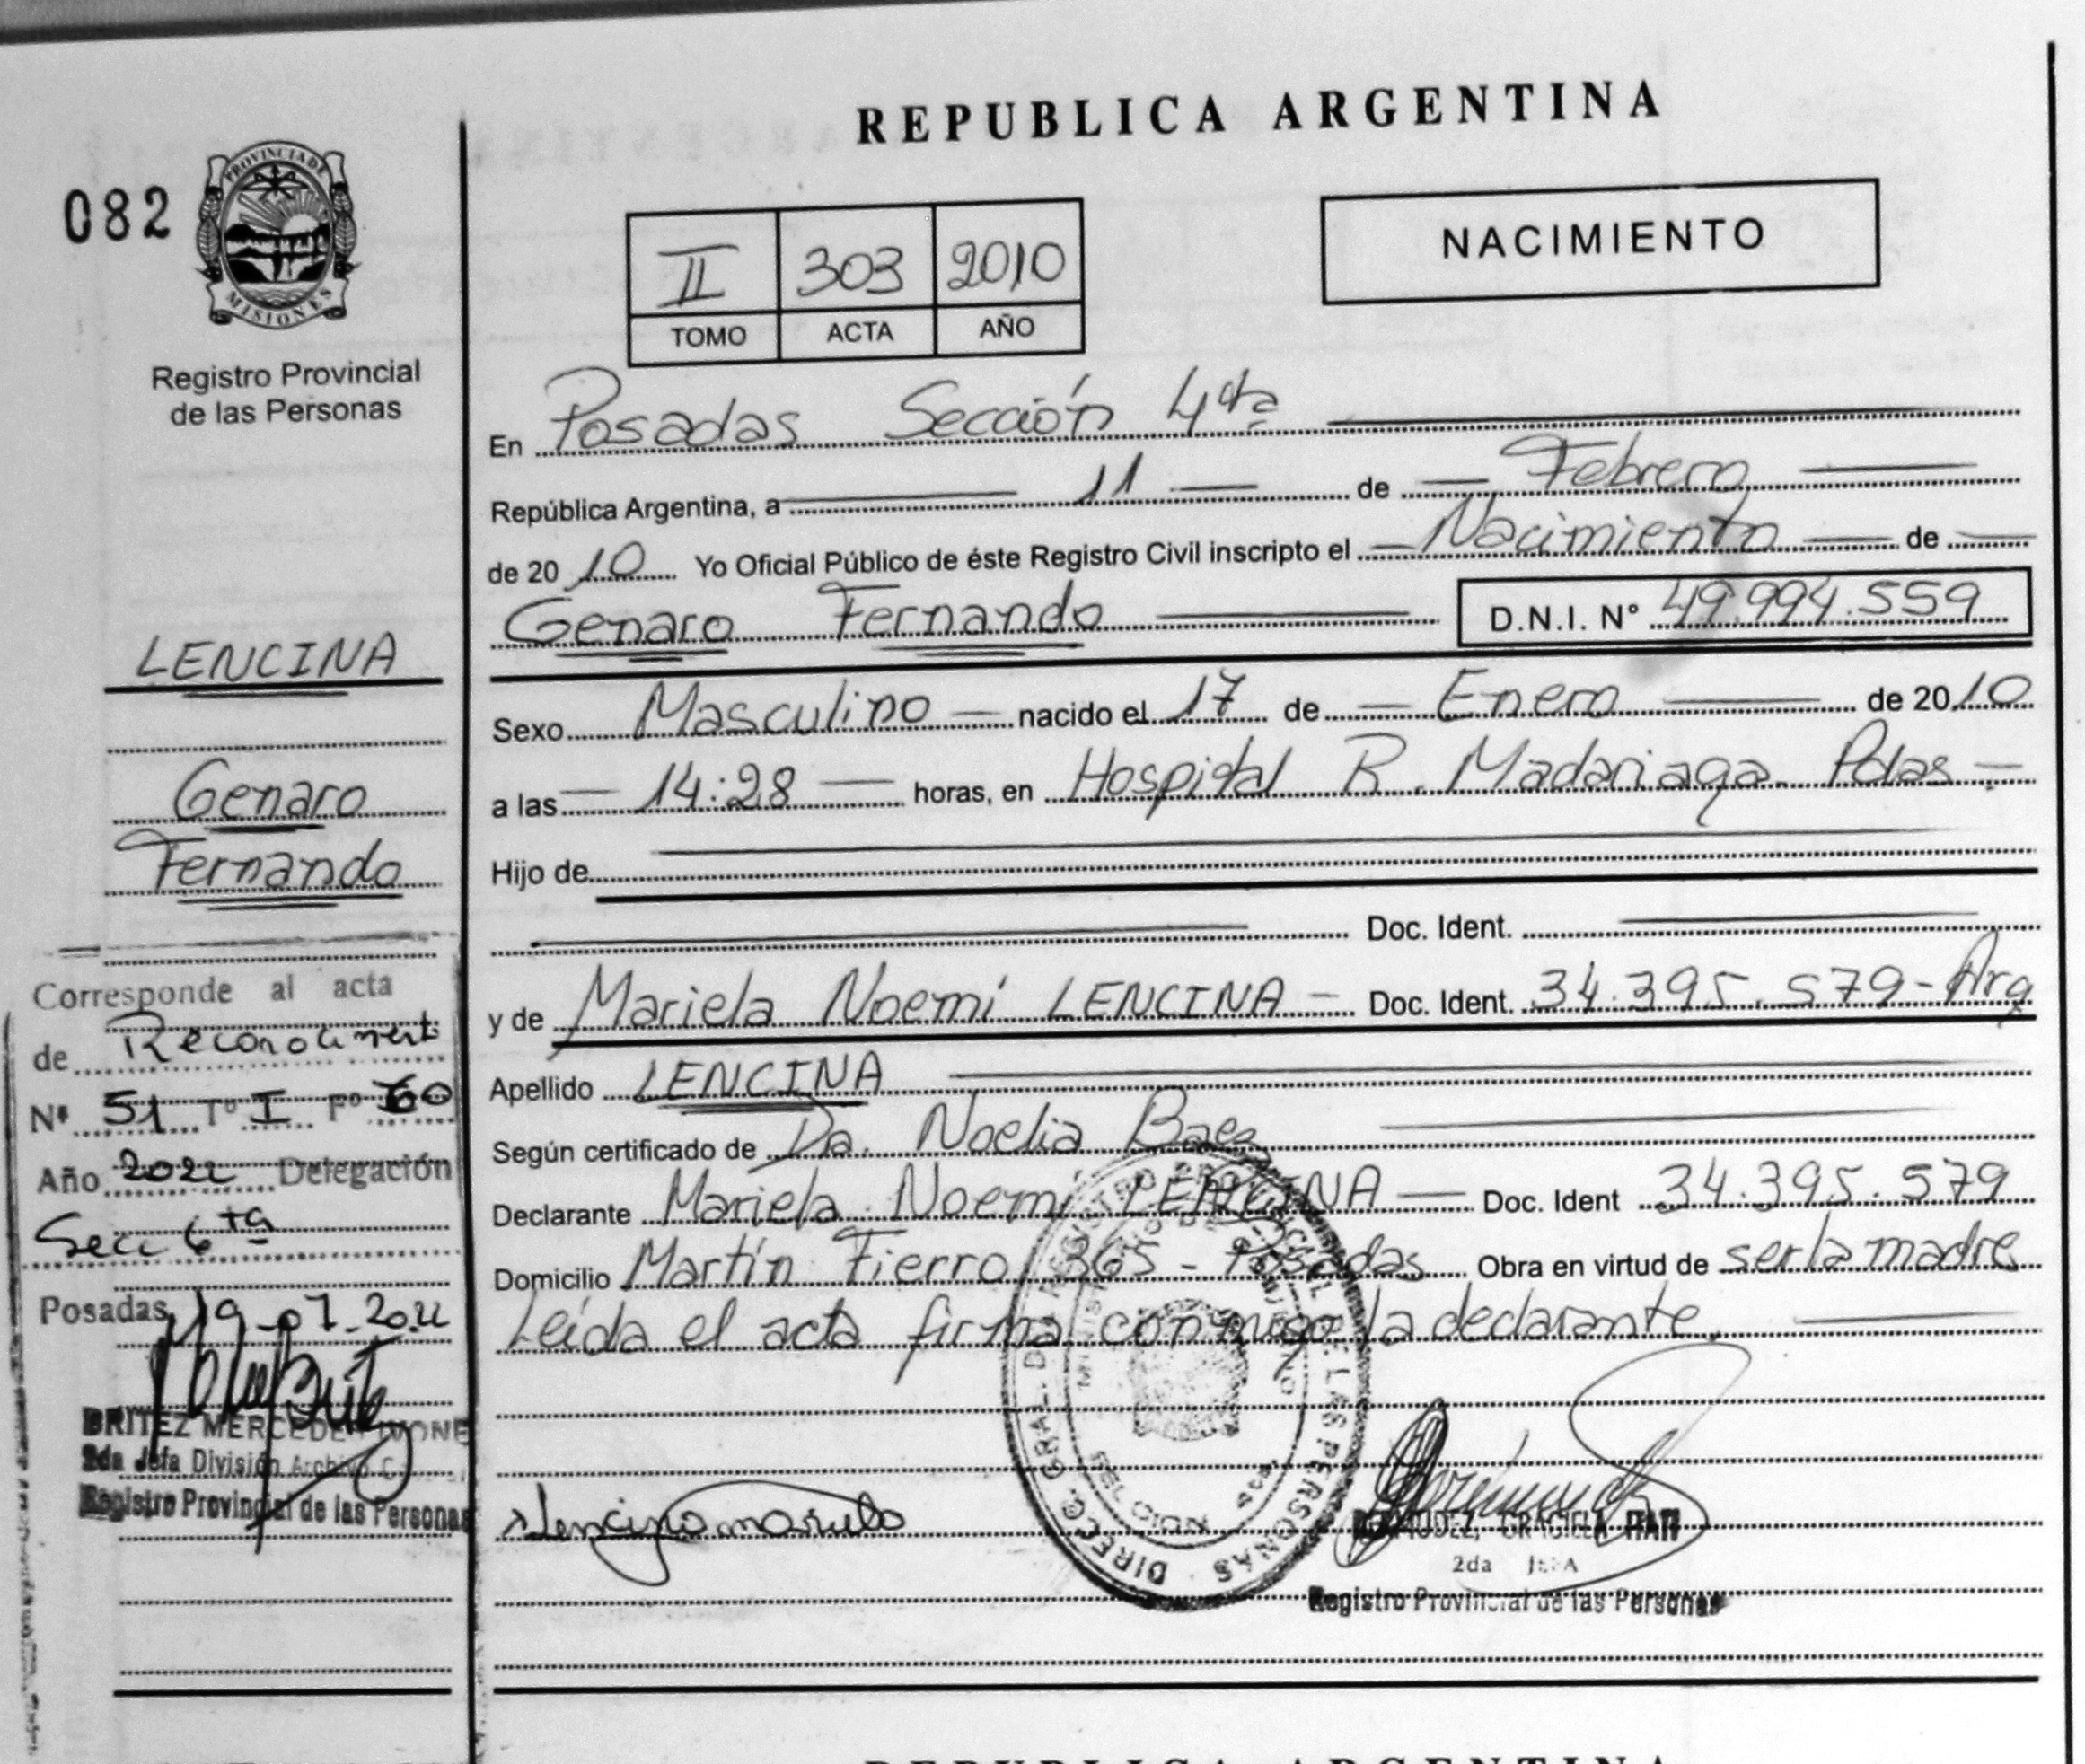 REPUBLICA ARGENTINA
082
PROVINCIA DE
MISIONES
Registro Provincial
de las Personas
NACIMIENTO
II 303 2010
TOMO ACTA AÑO
En Posadas Sección 4ta
República Argentina, a 11 de Febrero
de 2010 Yo Oficial Público de éste Registro Civil inscripto el Nacimiento de
Genaro Fernando D.N.I. N° 49.994.559
Sexo Masculino nacido el 17 de Enero de 2010
a las 14:28 horas, en Hospital R. Madariaga Pdas
Hijo de
Doc. Ident.
y de Mariela Noemí LENCINA Doc. Ident. 34.395.579-Arg
Apellido LENCINA
Según certificado de Da. Noelia Baez
Declarante Mariela Noemí LENCINA Doc. Ident 34.395.579
Domicilio Martín Fierro 365 - Posadas Obra en virtud de ser la madre
Leída el acta firma conmigo la declarante.
LENCINA
Genaro
Fernando
Corresponde al acta
de Reconocimient
Nº 51 Tº I Fº 60
Año 2022 Delegación
Secc 6ta
Posadas, 19-07-2022
BRITEZ MERCEDE IVONE
2da Jefa División Archivo
Registro Provincial de las Personas
DIRECC. GRAL. DEL REGISTRO PROVINCIAL DE LAS PERSONAS
Lencina mariela
BERMUDEZ, GRACIELA ITATI
2da JEFA
Registro Provincial de las Personas
REPUBLICA ARGENTINA